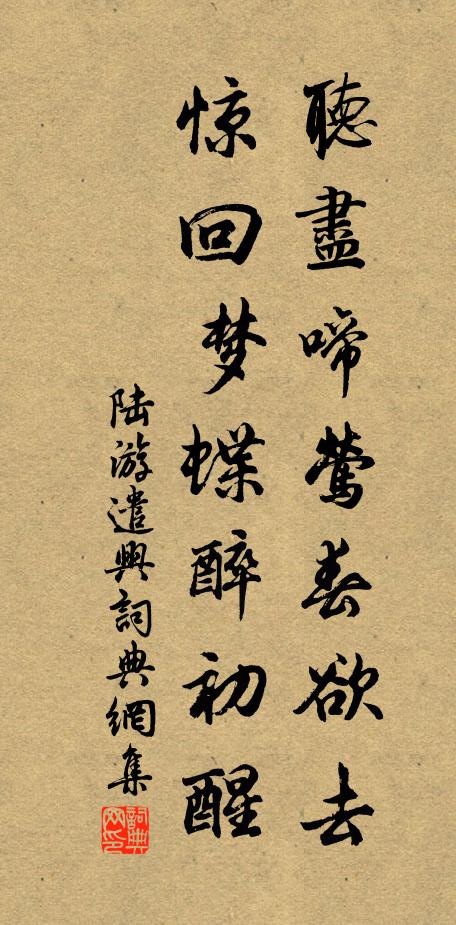 聽盡啼鶯春欲去
惊回梦蝶醉初醒
陆游遣興詞典網集
詞典网印